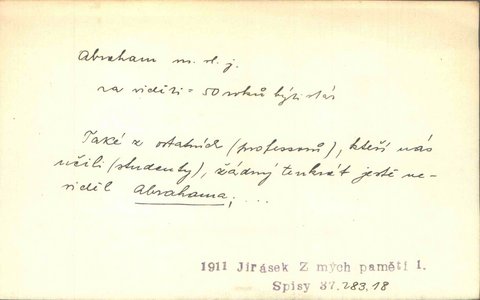 Abraham m. vl. j.
na viděti = 50 roků býti stár
Také z ostatních (professorů), kteří nás
učili (studenty), žádný tenkrát ještě ne-
viděl Abrahama; ...
1911 Jirásek Z mých pamětí 1.
Spisy 37.283.18